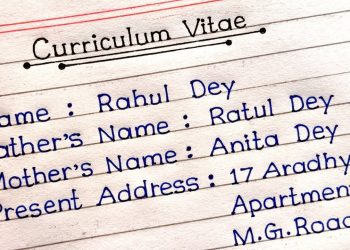 Curriculum Vitae
ame : Rahul Dey
ather's Name : Ratul Dey
Mother's Name : Anita Dey
Present Address : 17 Aradhy
Apartmen
M.G. Road